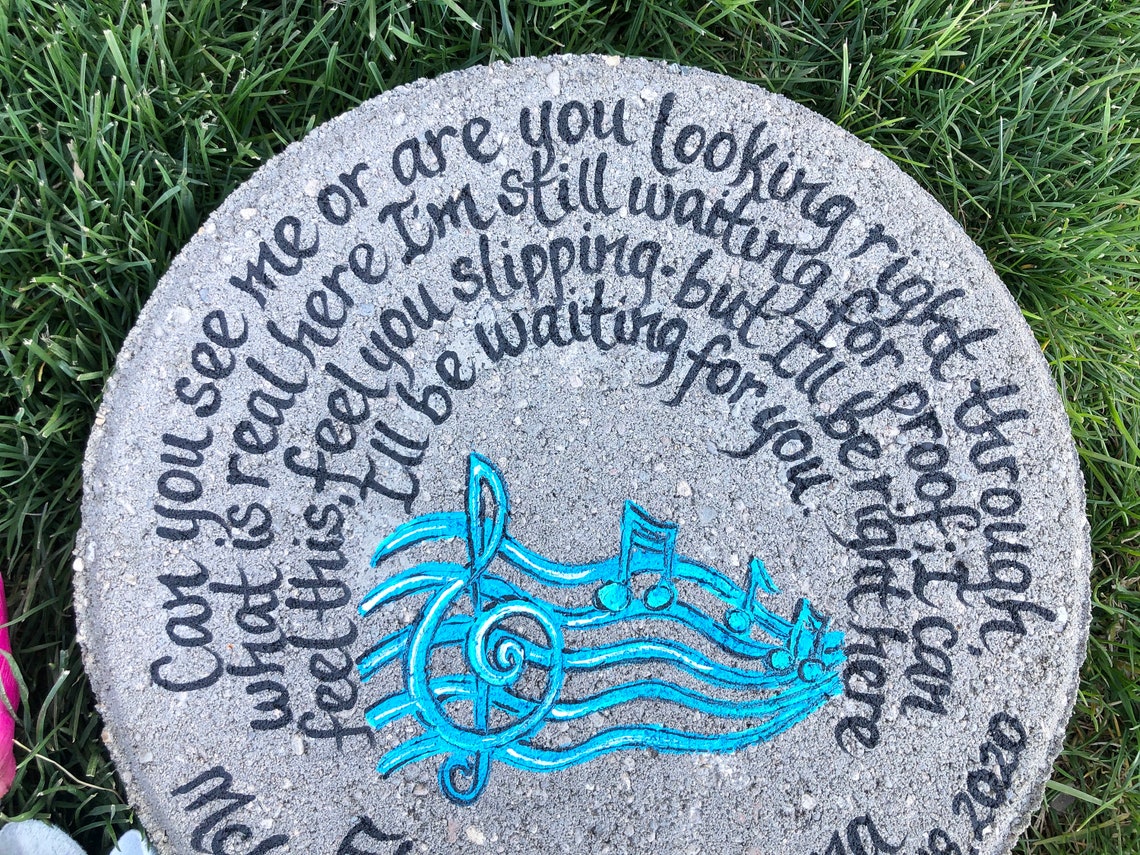 Can you see me or are you looking right through.
what is real here I'm still waiting for proof. I can
feel this, feel you slipping. but I'll be right here
I'll be waiting for you.
2020